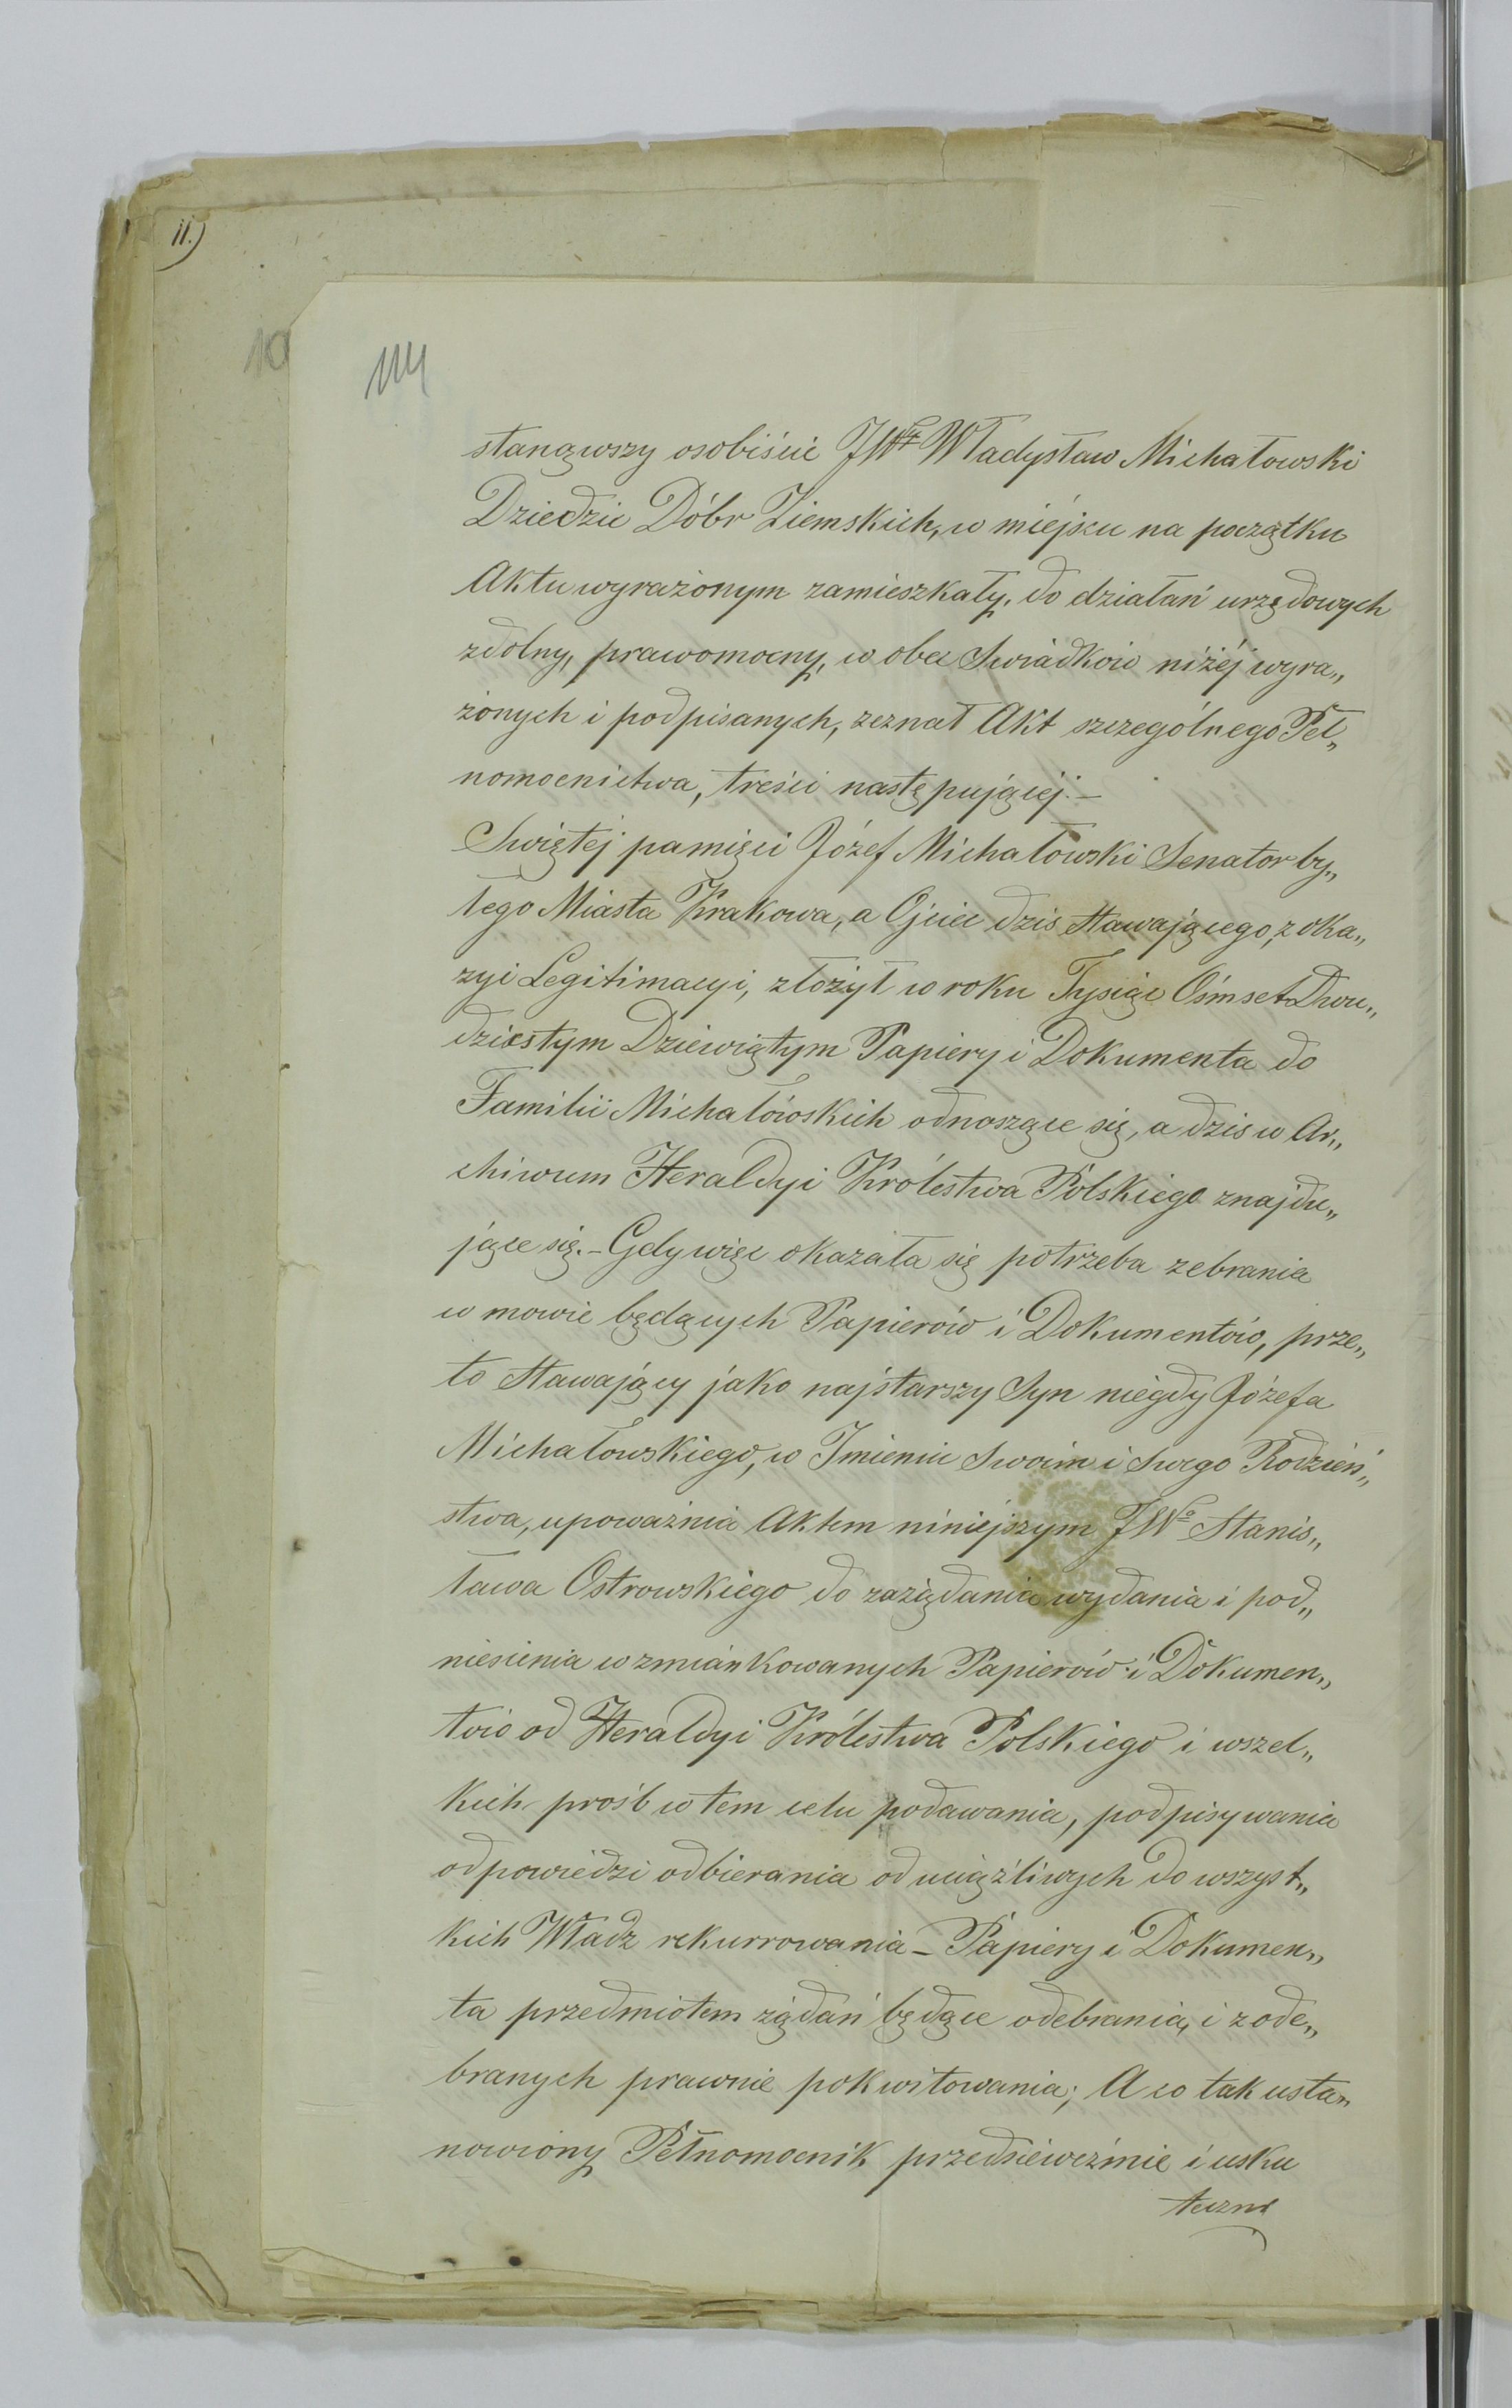 11.)
10
114
stanąwszy osobiście JWny Władysław Michałowski
Dziedzic Dóbr Ziemskich, w miéjscu na początku
Aktu wyrażonym zamieszkały, do działań urzędowych
zdolny, prawomocny, w obec Swiadków niżéj wyra„
żonych i podpisanych, zeznał Akt szczególnego Peł„
nomocnictwa, treści następującéj:—
Swiętéj pamięci Józef Michałowski Senator by„
łego Miasta Krakowa, a Ojciec dziś stawającego, z oka„
zyi Legitimacyi, złożył w roku Tysiąc Ośmset Dwu„
dziestym Dziewiątym Papiery i Dokumenta do
Familii Michałowskich odnoszące się, a dziś w Ar„
chiwum Heraldyi Królestwa Polskiego znajdu„
jące się.— Gdy więc okazała się potrzeba zebrania
w mowie będących Papierów i Dokumentów, prze„
to Stawający jako najstarszy Syn niegdy Józefa
Michałowskiego, w Imieniu Swoim i Swego Rodzeń„
stwa, upoważnia Aktem niniejszym JWo Stanis„
ława Ostrowskiego do zażądania wydania i pod„
niesienia wzmiankowanych Papierów i Dokumen„
tów od Heraldyi Królestwa Polskiego i wszel„
kich prośb w tem celu podawania, podpisywania
odpowiedzi odbierania od uciążliwych do wszyst„
kich Władz rekurrowania — Papiery i Dokumen„
ta przedmiotem żądań będące odebrania, i z ode„
branych prawnie pokwitowania; A co tak usta„
nowiony Pełnomocnik przedsięweźmie i usku
teczni